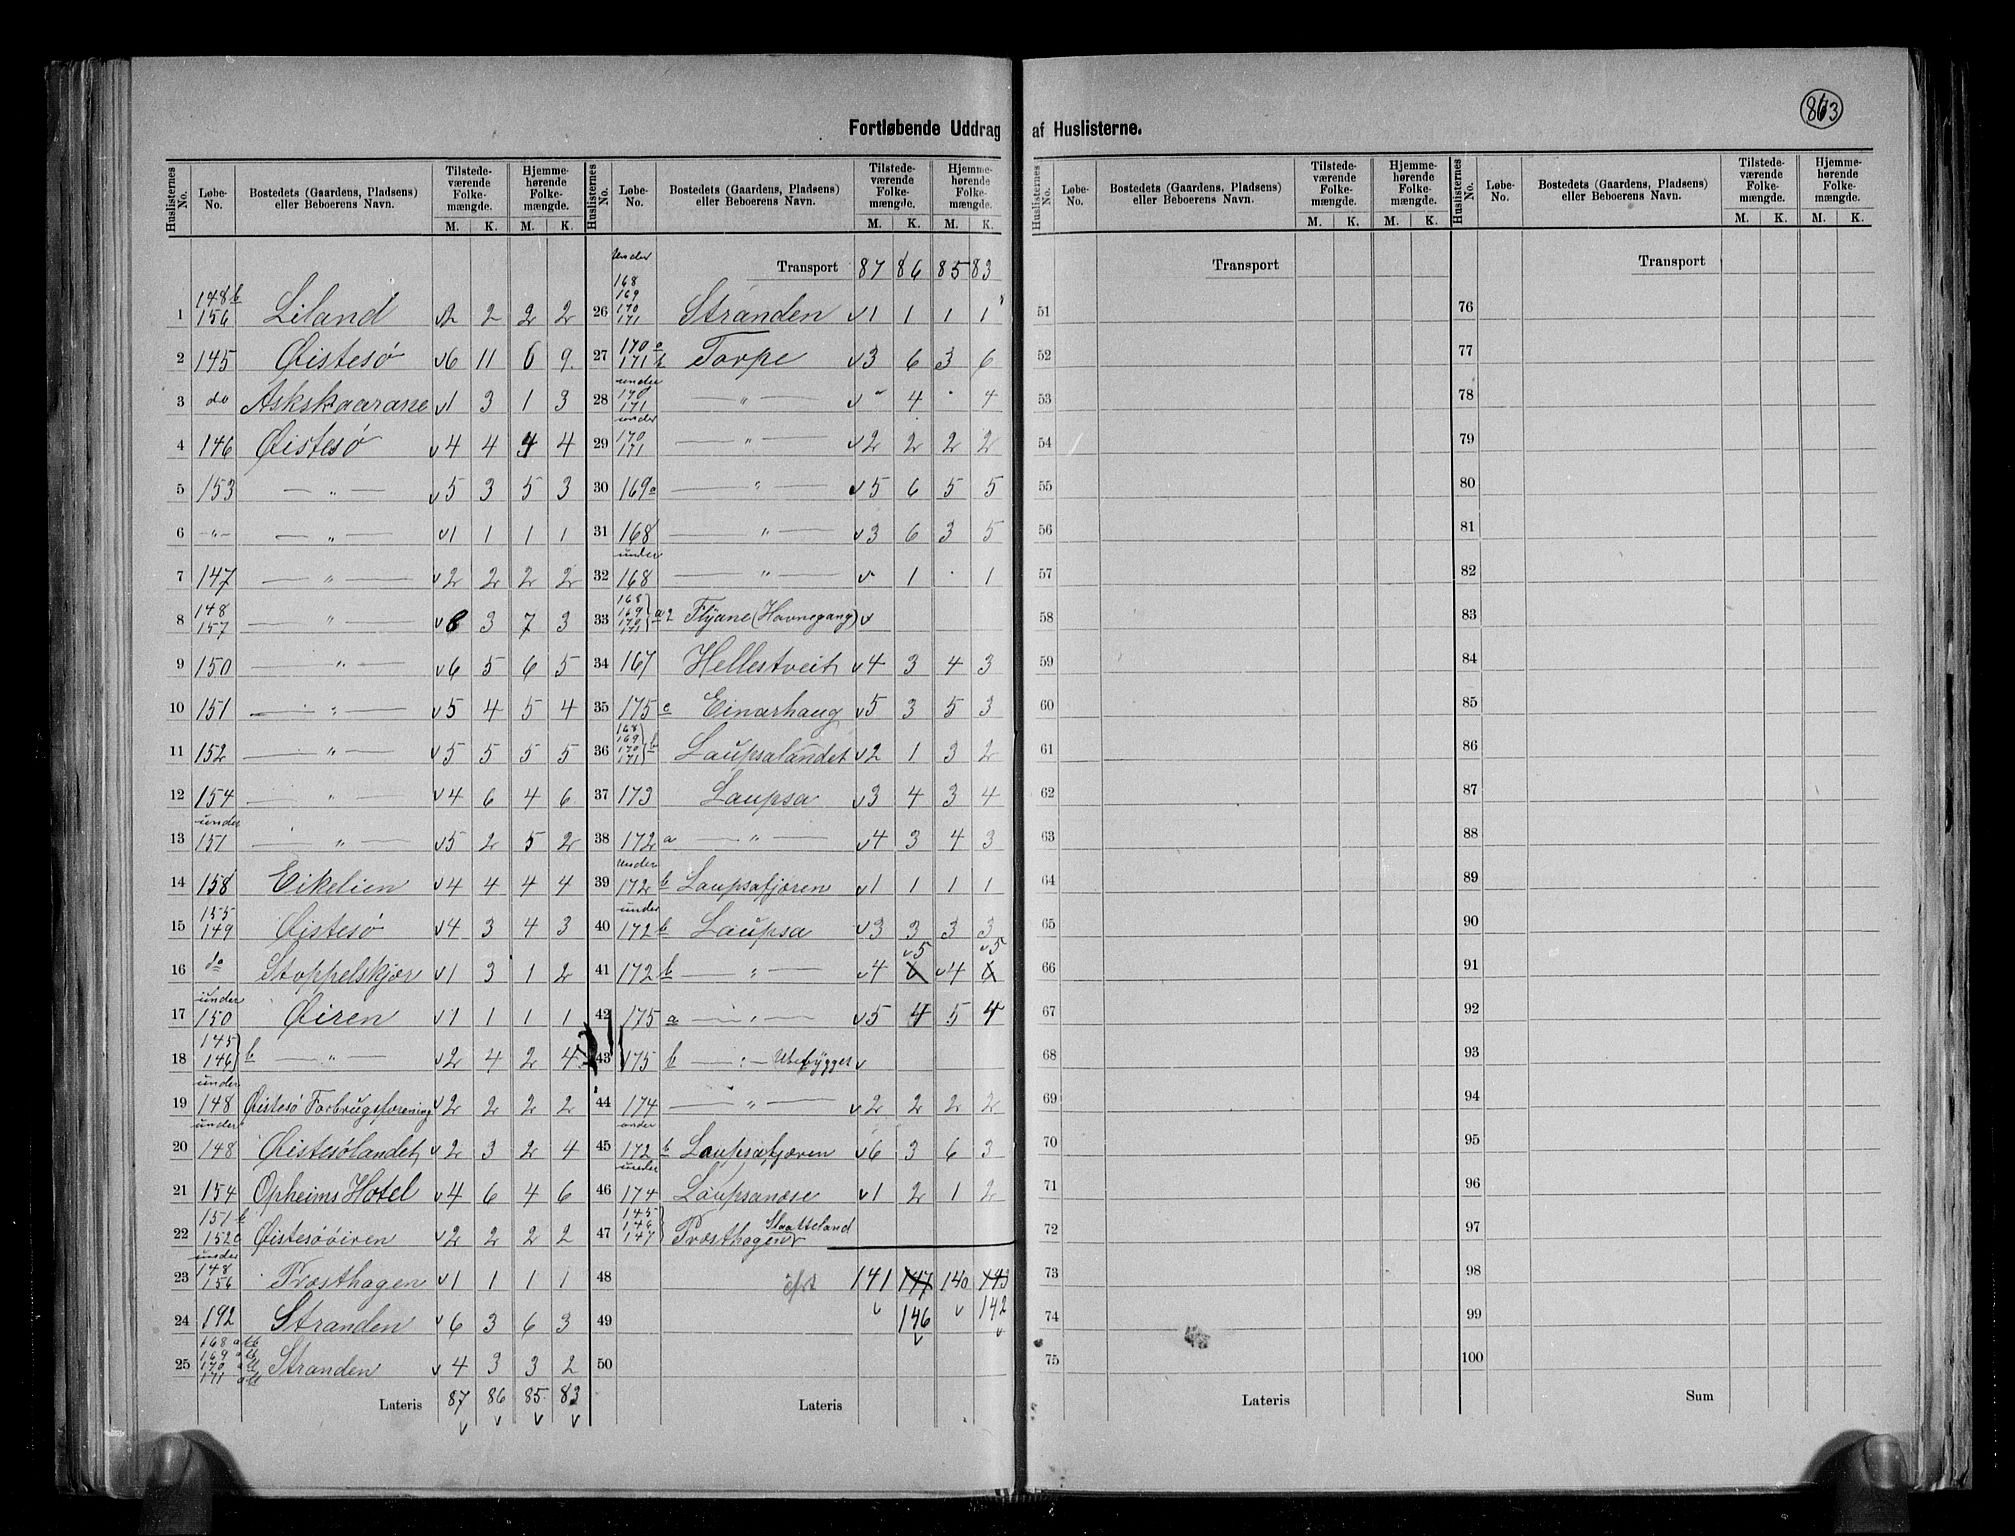 863
Fortløbende Uddrag af Huslisterne.
Huslisternes No. Løbe-No. Bostedets (Gaardens, Pladsens) eller Beboerens Navn. Tilstedeværende Folkemængde. Hjemmehørende Folkemængde.
M. K. M. K.
1 148b 156 Liland v2 2 2 2
2 145 Øistesø v6 11 6 9
3 do Askskaarane v1 3 1 3
4 146 Øistesø v4 4 4 4
5 153 — " — v5 3 5 3
6 -"- — " — v1 1 1 1
7 147 — " — v2 2 2 2
8 148 157 — " — v 3 7 3
9 150 — " — v6 5 6 5
10 151 — " — v5 4 5 4
11 152 — " — v5 5 5 5
12 154 — " — v4 6 4 6
13 under 151 — " — v5 2 5 2
14 158 Eikelien v4 4 4 4
15 155 149 Øistesø v4 3 4 3
16 do Stoppelskjær v1 3 1 2
17 under 150 Øiren v1 1 1 1
18 145 146 b — " — v2 4 2 4
19 under 148 Øistesø Forbrugsforening v2 2 2 2
20 under 148 Øistesølandet v2 3 2 4
21 154 Opheims Hotel v4 6 4 6
22 151b 152 Øistesøøiren v2 2 2 2
23 under 148 156 Præsthagen v1 1 1 1
24 192 Stranden v6 3 6 3
25 168 169 170 171 Stranden v4 3 3 2
Lateris 87 86 85 83
v v v v
Huslisternes No. Løbe-No. Bostedets (Gaardens, Pladsens) eller Beboerens Navn. Tilstedeværende Folkemængde. Hjemmehørende Folkemængde.
M. K. M. K.
Transport 87 86 85 83
26 under 168 169 170 171 Stranden v1 1 1 1
27 170a 171b Torpe v3 6 3 6
28 under 170 171 — " — v " 4 " 4
29 under 170 171 — " — v2 2 2 2
30 169a — " — v5 6 5 5
31 168 — " — v3 6 3 5
32 under 168 — " — v 1 . 1
33 168 169 170 171 a2 Flyane (Havnegang) v
34 167 Hellestveit v4 3 4 3
35 175 c Einarhaug v5 3 5 3
36 168 169 170 171 b Laupsalandet v2 1 3 2
37 173 Laupsa v3 4 3 4
38 172 a — " — v4 3 4 3
39 under 172 b Laupsafjæren v1 1 1 1
40 under 172 b Laupsa v3 3 3 3
41 172 b — " — v4 v5 v4 v5
42 175 a — " — v5 4 5 4
43 175 b — " — Ubebygget v
44 174 — " — v2 2 2 2
45 under 172 b Laupsafjæren v6 3 6 3
46 under 174 Laupsanæse v1 2 1 2
47 145 146 147 Præsthagen Slaatteland
48 141 147 140 143
49 v 146 v 142
v v
50
Lateris
Huslisternes No. Løbe-No. Bostedets (Gaardens, Pladsens) eller Beboerens Navn. Tilstedeværende Folkemængde. Hjemmehørende Folkemængde.
M. K. M. K.
Transport
51
52
53
54
55
56
57
58
59
60
61
62
63
64
65
66
67
68
69
70
71
72
73
74
75
Lateris
Huslisternes No. Løbe-No. Bostedets (Gaardens, Pladsens) eller Beboerens Navn. Tilstedeværende Folkemængde. Hjemmehørende Folkemængde.
M. K. M. K.
Transport
76
77
78
79
80
81
82
83
84
85
86
87
88
89
90
91
92
93
94
95
96
97
98
99
100
Sum